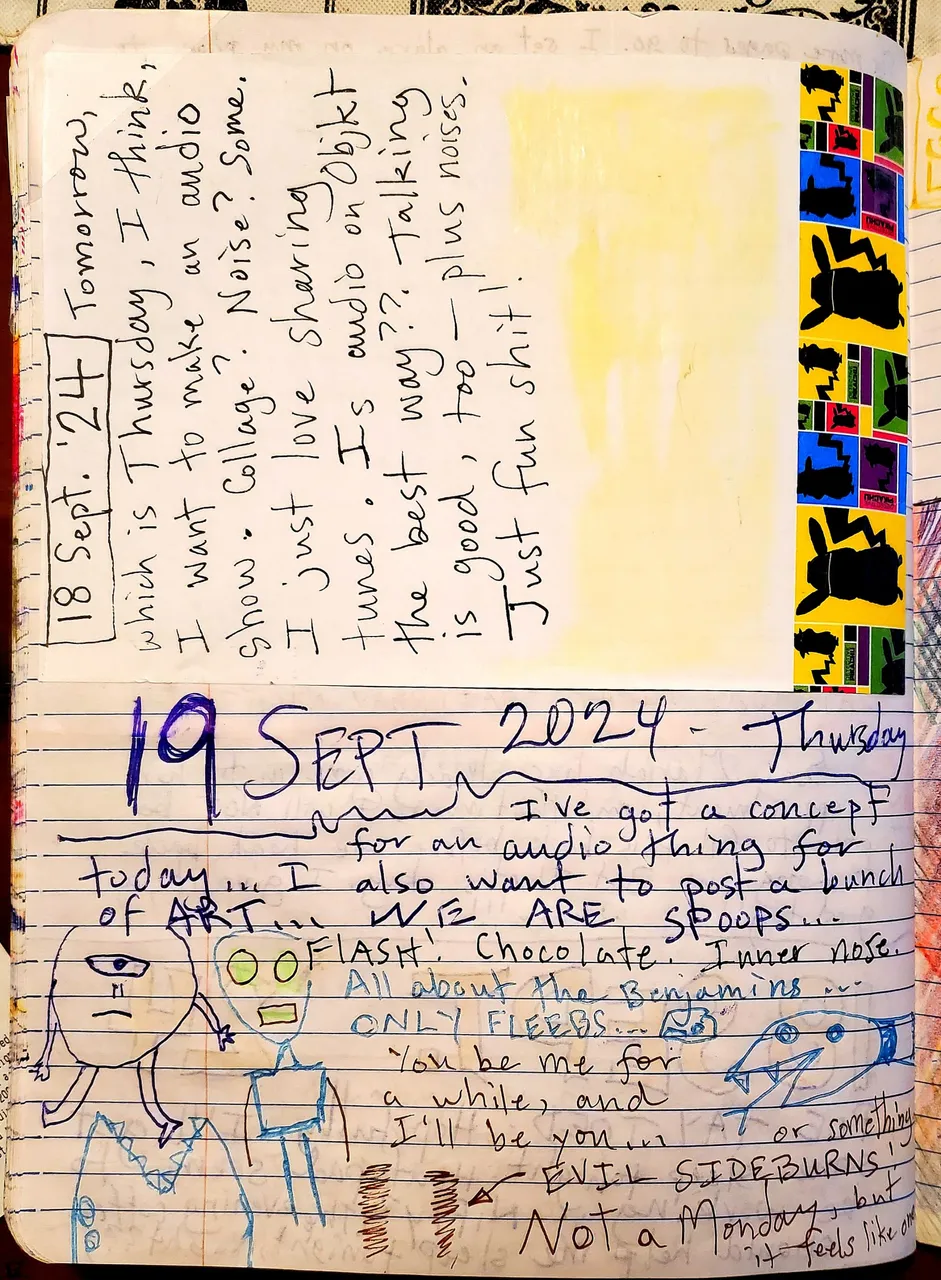 18 Sept. '24 Tomorrow,
which is Thursday, I think,
I want to make an audio
show. Collage? Noise? Some.
I just love sharing
tunes. Is audio on Objkt
the best way?? Talking
is good, too — plus noises.
Just fun shit!
PIKACHU
PIKACHU
19 SEPT 2024 - Thursday
I've got a concept
for an audio thing for
today... I also want to post a bunch
of ART... WE ARE SPOOPS...
FLASH! Chocolate. Inner nose.
All about the Benjamins...
ONLY FLEEBS...
You be me for
a while, and
I'll be you...
or something
EVIL SIDEBURNS!
Not a Monday, but
it feels like one